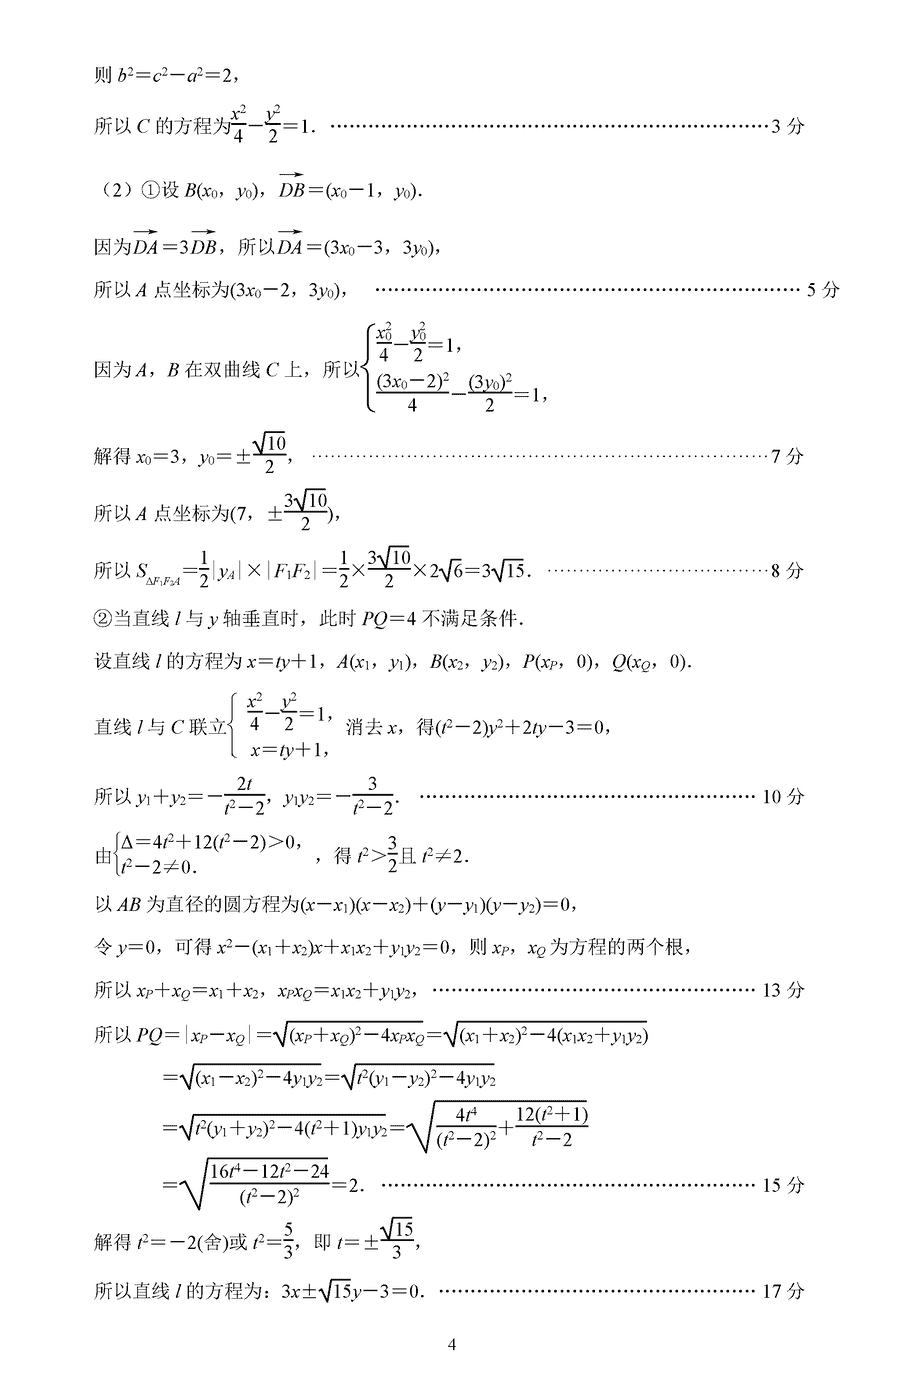 则 b²=c²-a²=2,
所以 C 的方程为x²/4-y²/2=1. ………………………………………………………………3 分
(2)①设 B(x₀, y₀), \overrightarrow{DB}=(x₀-1, y₀).
因为\overrightarrow{DA}=3\overrightarrow{DB}, 所以\overrightarrow{DA}=(3x₀-3, 3y₀),
所以 A 点坐标为(3x₀-2, 3y₀), ……………………………………………………………… 5 分
因为 A, B 在双曲线 C 上, 所以{x₀²/4-y₀²/2=1, (3x₀-2)²/4-(3y₀)²/2=1,
解得 x₀=3, y₀=±√10/2, ………………………………………………………………7 分
所以 A 点坐标为(7, ±3√10/2),
所以 S_{ΔF₁F₂A}=1/2|y_A|×|F₁F₂|=1/2×3√10/2×2√6=3√15. ………………………………8 分
②当直线 l 与 y 轴垂直时, 此时 PQ=4 不满足条件.
设直线 l 的方程为 x=ty+1, A(x₁, y₁), B(x₂, y₂), P(x_P, 0), Q(x_Q, 0).
直线 l 与 C 联立{x²/4-y²/2=1, x=ty+1, 消去 x, 得(t²-2)y²+2ty-3=0,
所以 y₁+y₂=-2t/(t²-2), y₁y₂=-3/(t²-2). ……………………………………………… 10 分
由{Δ=4t²+12(t²-2)>0, t²-2≠0. , 得 t²>3/2且 t²≠2.
以 AB 为直径的圆方程为(x-x₁)(x-x₂)+(y-y₁)(y-y₂)=0,
令 y=0, 可得 x²-(x₁+x₂)x+x₁x₂+y₁y₂=0, 则 x_P, x_Q 为方程的两个根,
所以 x_P+x_Q=x₁+x₂, x_Px_Q=x₁x₂+y₁y₂, ……………………………………………… 13 分
所以 PQ=|x_P-x_Q|=√((x_P+x_Q)²-4x_Px_Q)=√((x₁+x₂)²-4(x₁x₂+y₁y₂))
=√((x₁-x₂)²-4y₁y₂)=√(t²(y₁-y₂)²-4y₁y₂)
=√(t²(y₁+y₂)²-4(t²+1)y₁y₂)=√(4t⁴/(t²-2)²+12(t²+1)/(t²-2))
=√((16t⁴-12t²-24)/(t²-2)²)=2. ……………………………………………………… 15 分
解得 t²=-2(舍)或 t²=5/3, 即 t=±√15/3,
所以直线 l 的方程为: 3x±√15y-3=0. ……………………………………………… 17 分
4